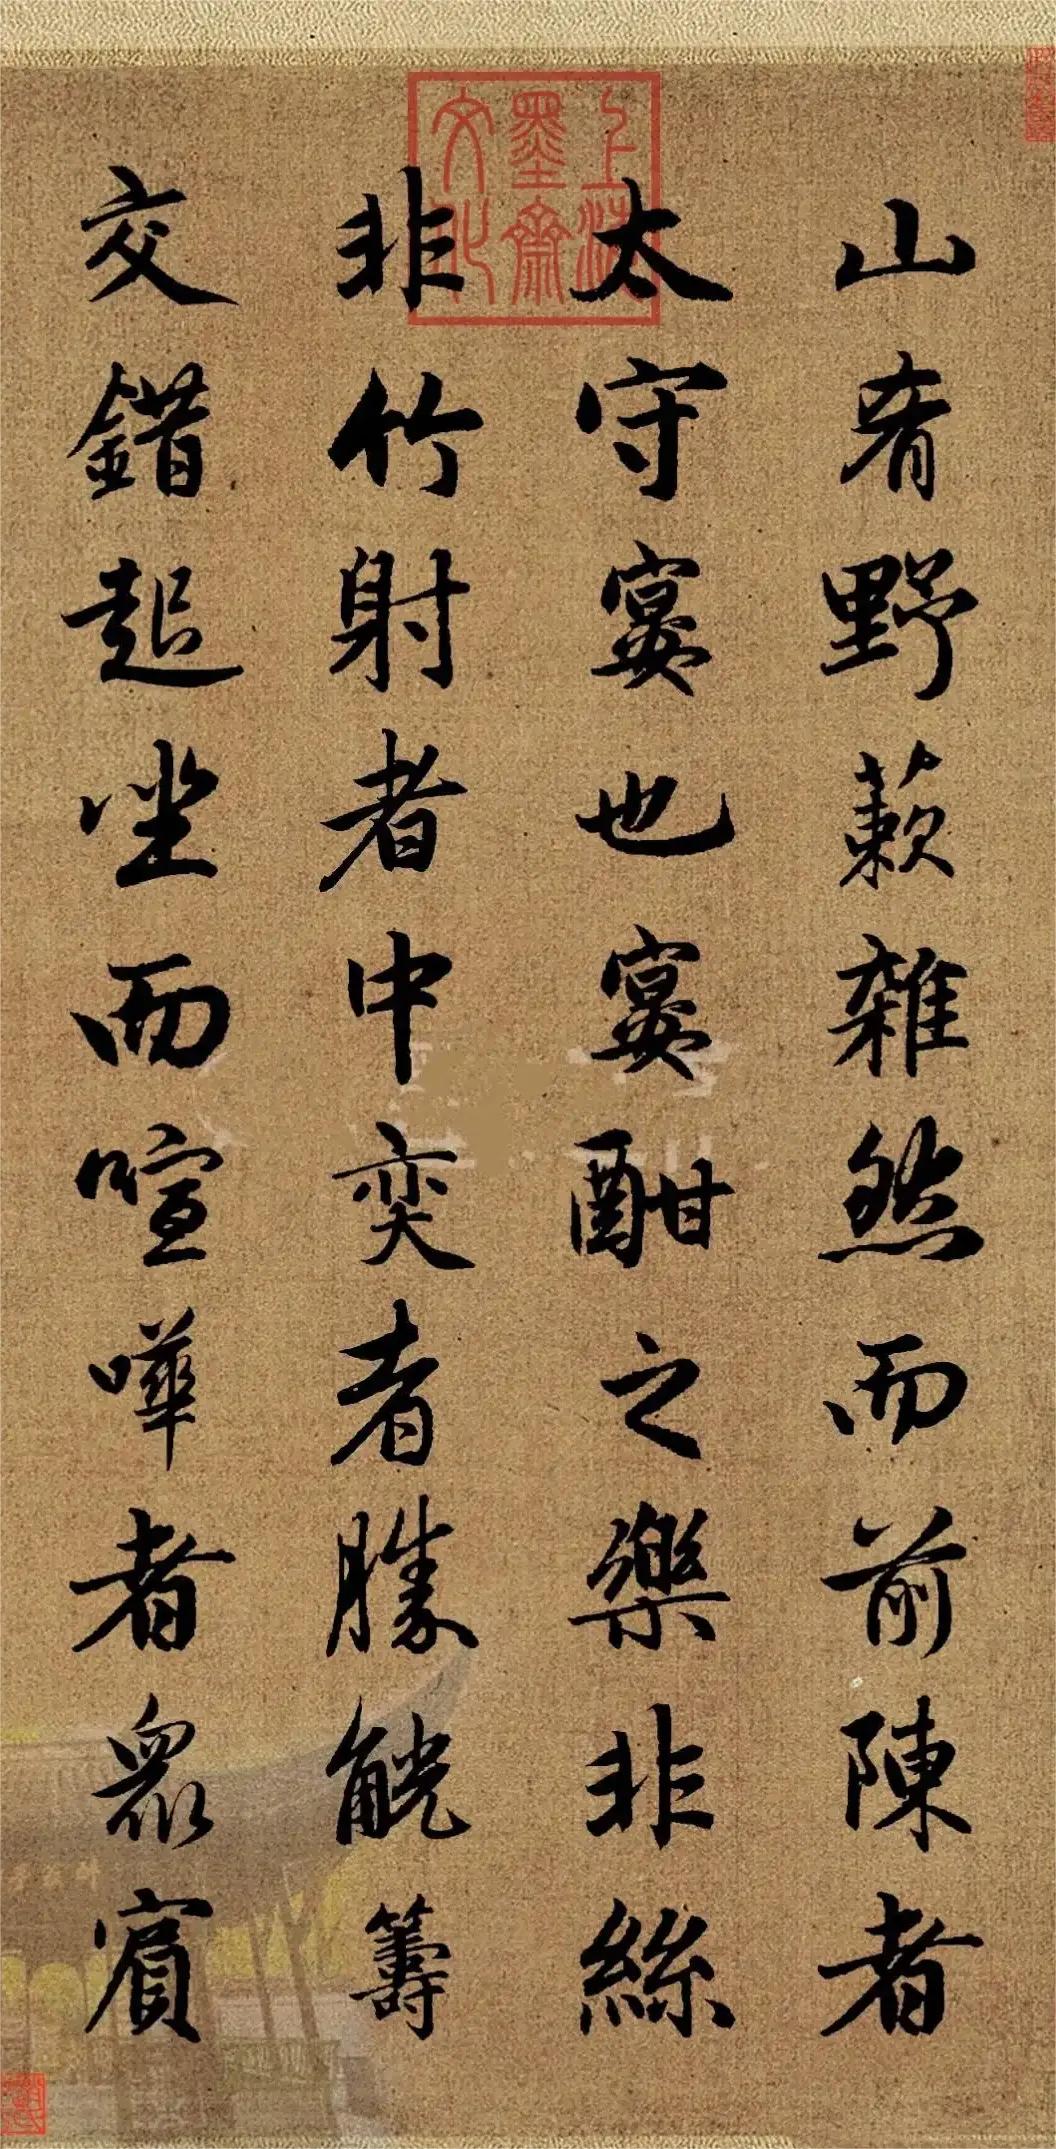 上
墨齋
文化
山肴野蔌雜然而前陳者
太守宴也宴酣之樂非絲
非竹射者中奕者勝觥籌
交錯起坐而喧嘩者眾賓